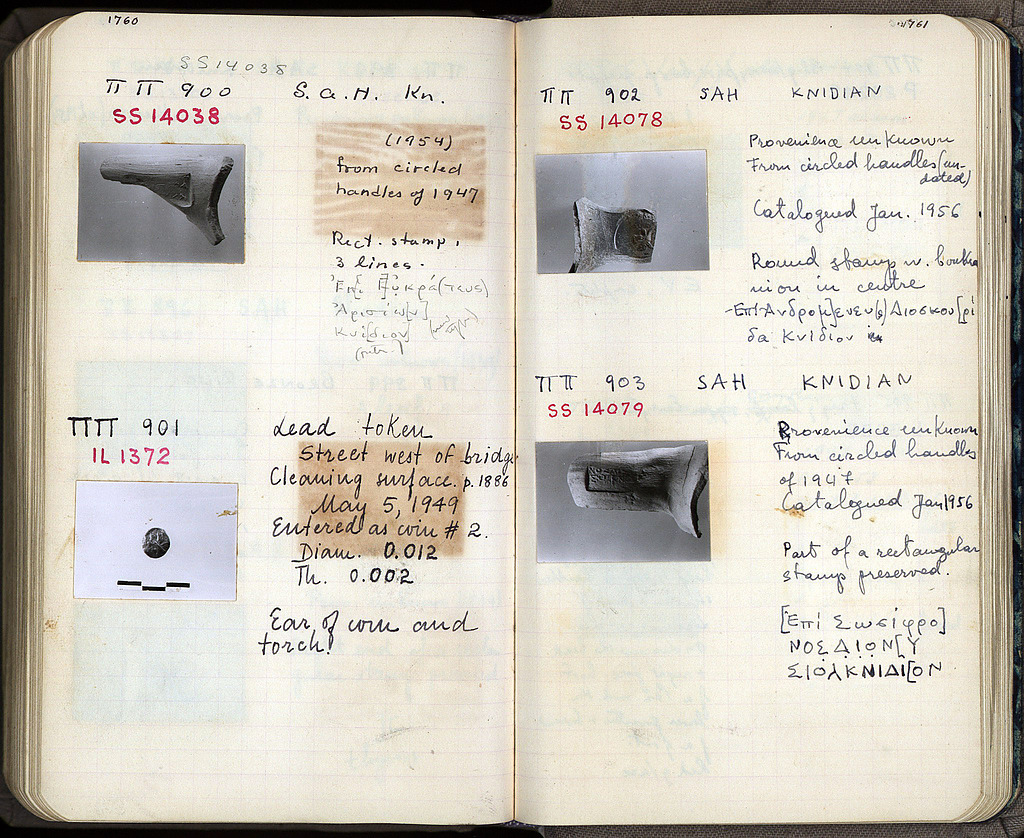 1760
SS14038
ΠΠ 900 S.a.H. Kn.
SS 14038
(1954)
from circled
handles of 1947
Rect. stamp,
3 lines.
Ἐπὶ Εὐκρά(τευς)
Ἀριστίω[ν]
Κνίδιον
ΠΠ 901
IL 1372
Lead token
Street west of bridge
Cleaning surface. p. 1886
May 5, 1949
Entered as coin # 2.
Diam. 0.012
Th. 0.002
Ear of corn and
torch.
1761
ΠΠ 902 SAH KNIDIAN
SS 14078
Provenience unknown
From circled handles (un-
dated)
Catalogued Jan. 1956
Round stamp w. boukra
nion in centre
Ἐπὶ Ἀνδρομ]ένευ(ς) Διοσκου[ρί
δα Κνίδιον
ΠΠ 903 SAH KNIDIAN
SS 14079
Provenience unknown
From circled handles
of 1947
Catalogued Jan 1956
Part of a rectangular
stamp preserved.
[Ἐπὶ Σωσίφρο]
ΝΟΣ ΔΙΟΝ[Υ
ΣΙΟΛ ΚΝΙΔΙ[ΟΝ